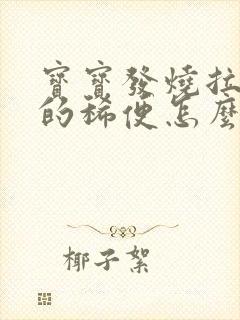 寶寶發燒拉
的稀便怎麼
椰子絮